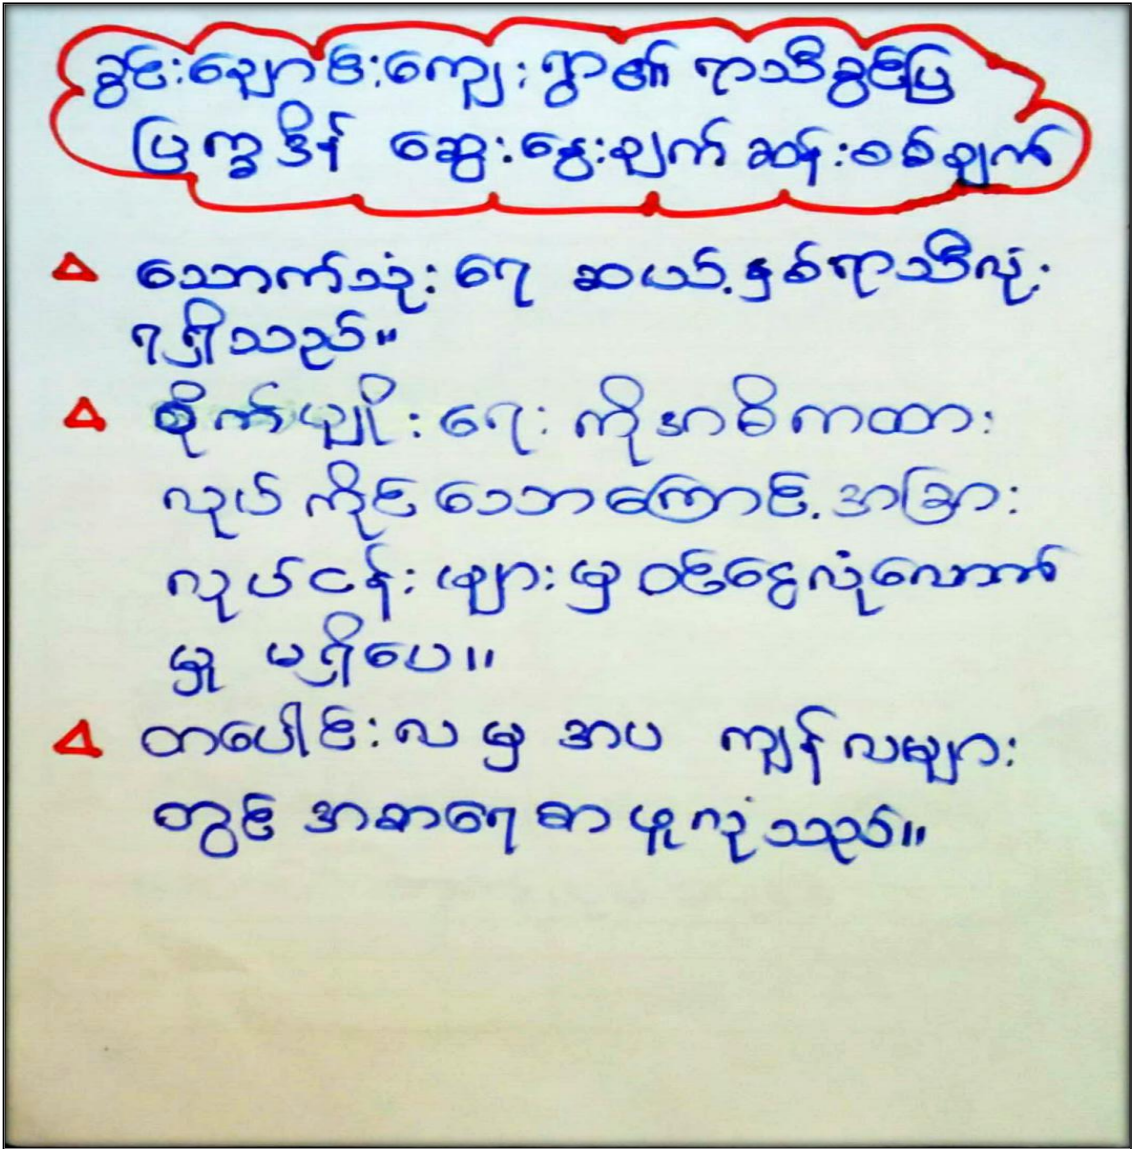 ခွင်းချောင်းကျေးရွာ၏ ရာသီခွင်ပြ
ပြက္ခဒိန် ဆွေးနွေးချက် ဆန်းစစ်ချက်
သောက်သုံးရေ ဆယ့်နှစ်ရာသီလုံး
ရရှိသည်။
စိုက်ပျိုးရေးကိုအဓိကထား
လုပ်ကိုင်သောကြောင့် အခြား
လုပ်ငန်းများမှ ဝင်ငွေလုံလောက်
မှု မရှိပေ။
တပေါင်းလ မှ အပ ကျန်လများ
တွင် အစာရေစာ ဖူလုံသည်။